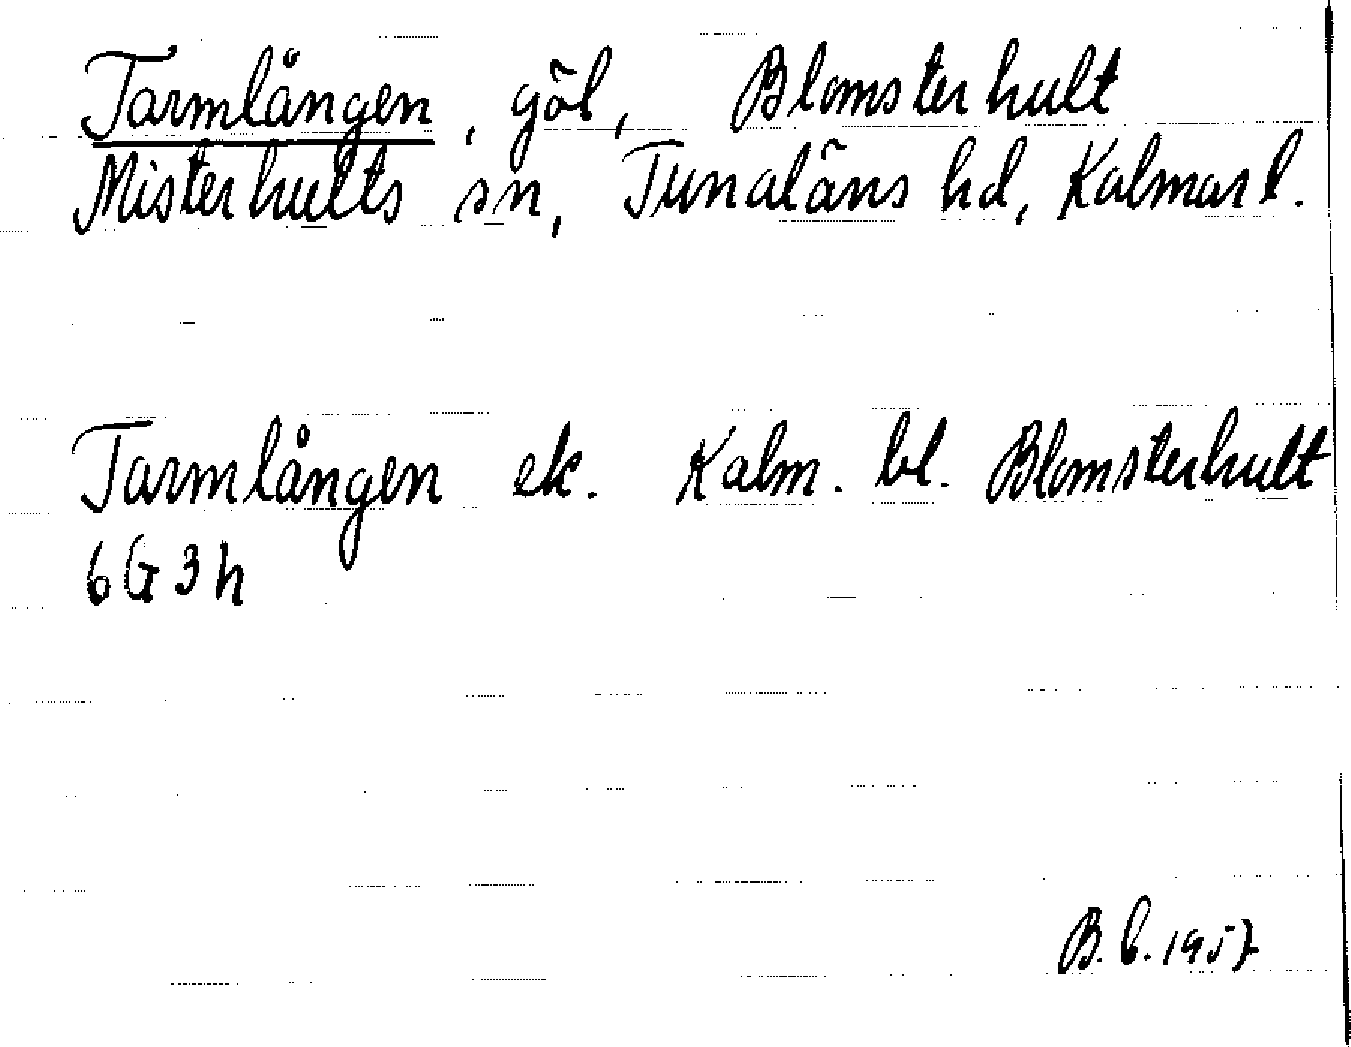 Tarmlången, göl, Blomsterhult
Misterhults sn, Tunaläns hd, Kalmar l.
Tarmlången ek. Kalm. bl. Blomsterhult
6G3h
B. b. 1957